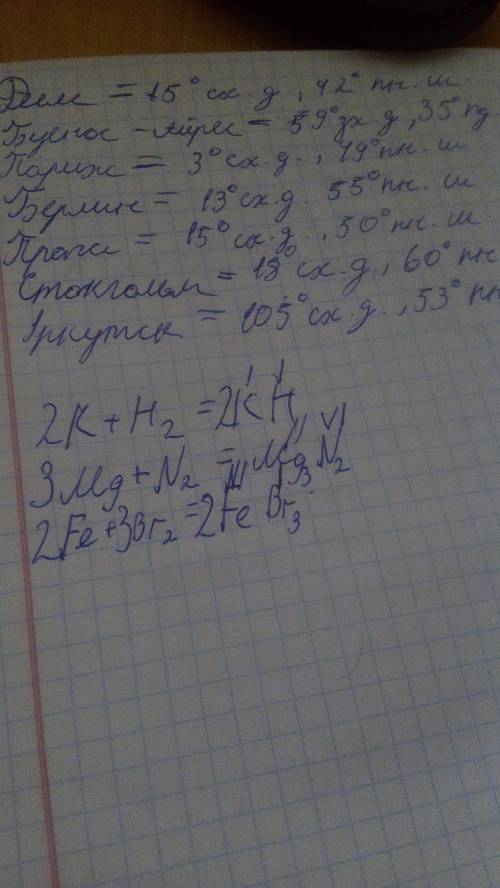 = 15° сх. д., 42° пн. ш.
Буенос - Айрес = 59° зх. д., 35° пд
Париж = 3° сх. д., 49° пн. ш
Берлин = 13° сх. д. 55° пн. ш
= 15° сх. д., 50° пн. ш
Стокгольм = 18° сх. д., 60° пн
Іркутськ = 105° сх. д., 53° пн
2K + H₂ = 2KᴵHᴵ
3Mg + N₂ = Mgᴵᴵ₃Nⱽᴵ₂
2Fe + 3Br₂ = 2FeᴵᴵᴵBr₃